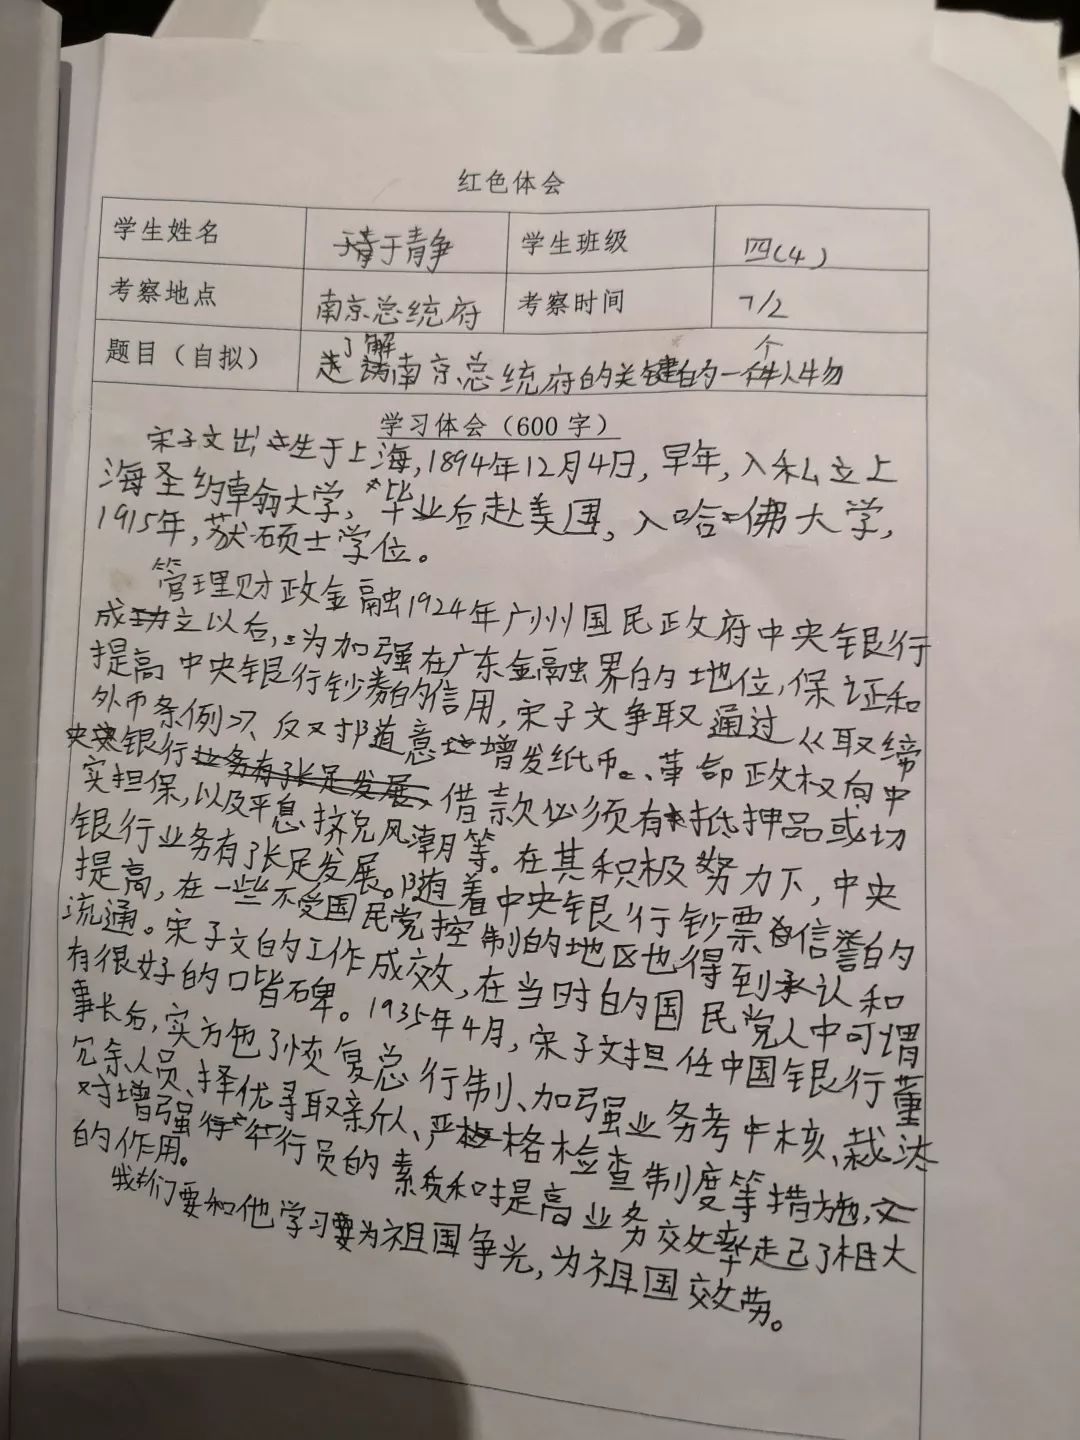 红色体会
学生姓名 于青静 学生班级 四(4)
考察地点 南京总统府 考察时间 7/2
题目（自拟） 了解南京总统府的关键的一个人物
学习体会（600 字）
宋子文出生于上海,1894年12月4日,早年,入私立上
海圣约翰大学,毕业后赴美国,入哈佛大学,
1915年,获硕士学位。
管理财政金融1924年广州国民政府中央银行
成立以后,为加强在广东金融界的地位,保证和
提高中央银行钞券的信用,宋子文争取通过《取缔
外币条例》、反对随意增发纸币、革命政权向中
央银行借款必须有抵押品或切
实担保,以及平息挤兑风潮等。在其积极努力下,中央
银行业务有了长足发展。随着中央银行钞票信誉的
提高,在一些不受国民党控制的地区也得到承认和
流通。宋子文的工作成效,在当时的国民党人中可谓
有很好的口皆碑。1935年4月,宋子文担任中国银行董
事长后,实方包了恢复总行制、加强业务考核、裁汰
冗余人员、择优录取新人、严格检查制度等措施,
对增强行员的素质和提高业务效率走己了相大
的作用。
我们要和他学习要为祖国争光,为祖国效劳。